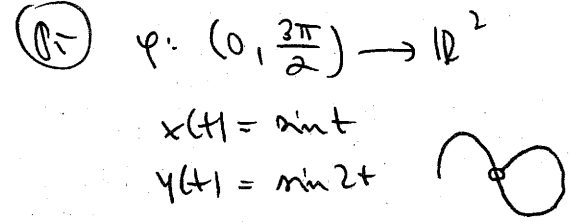 Př φ: (0, 3π/2) → ℝ²
x(t) = sin t
y(t) = sin 2t